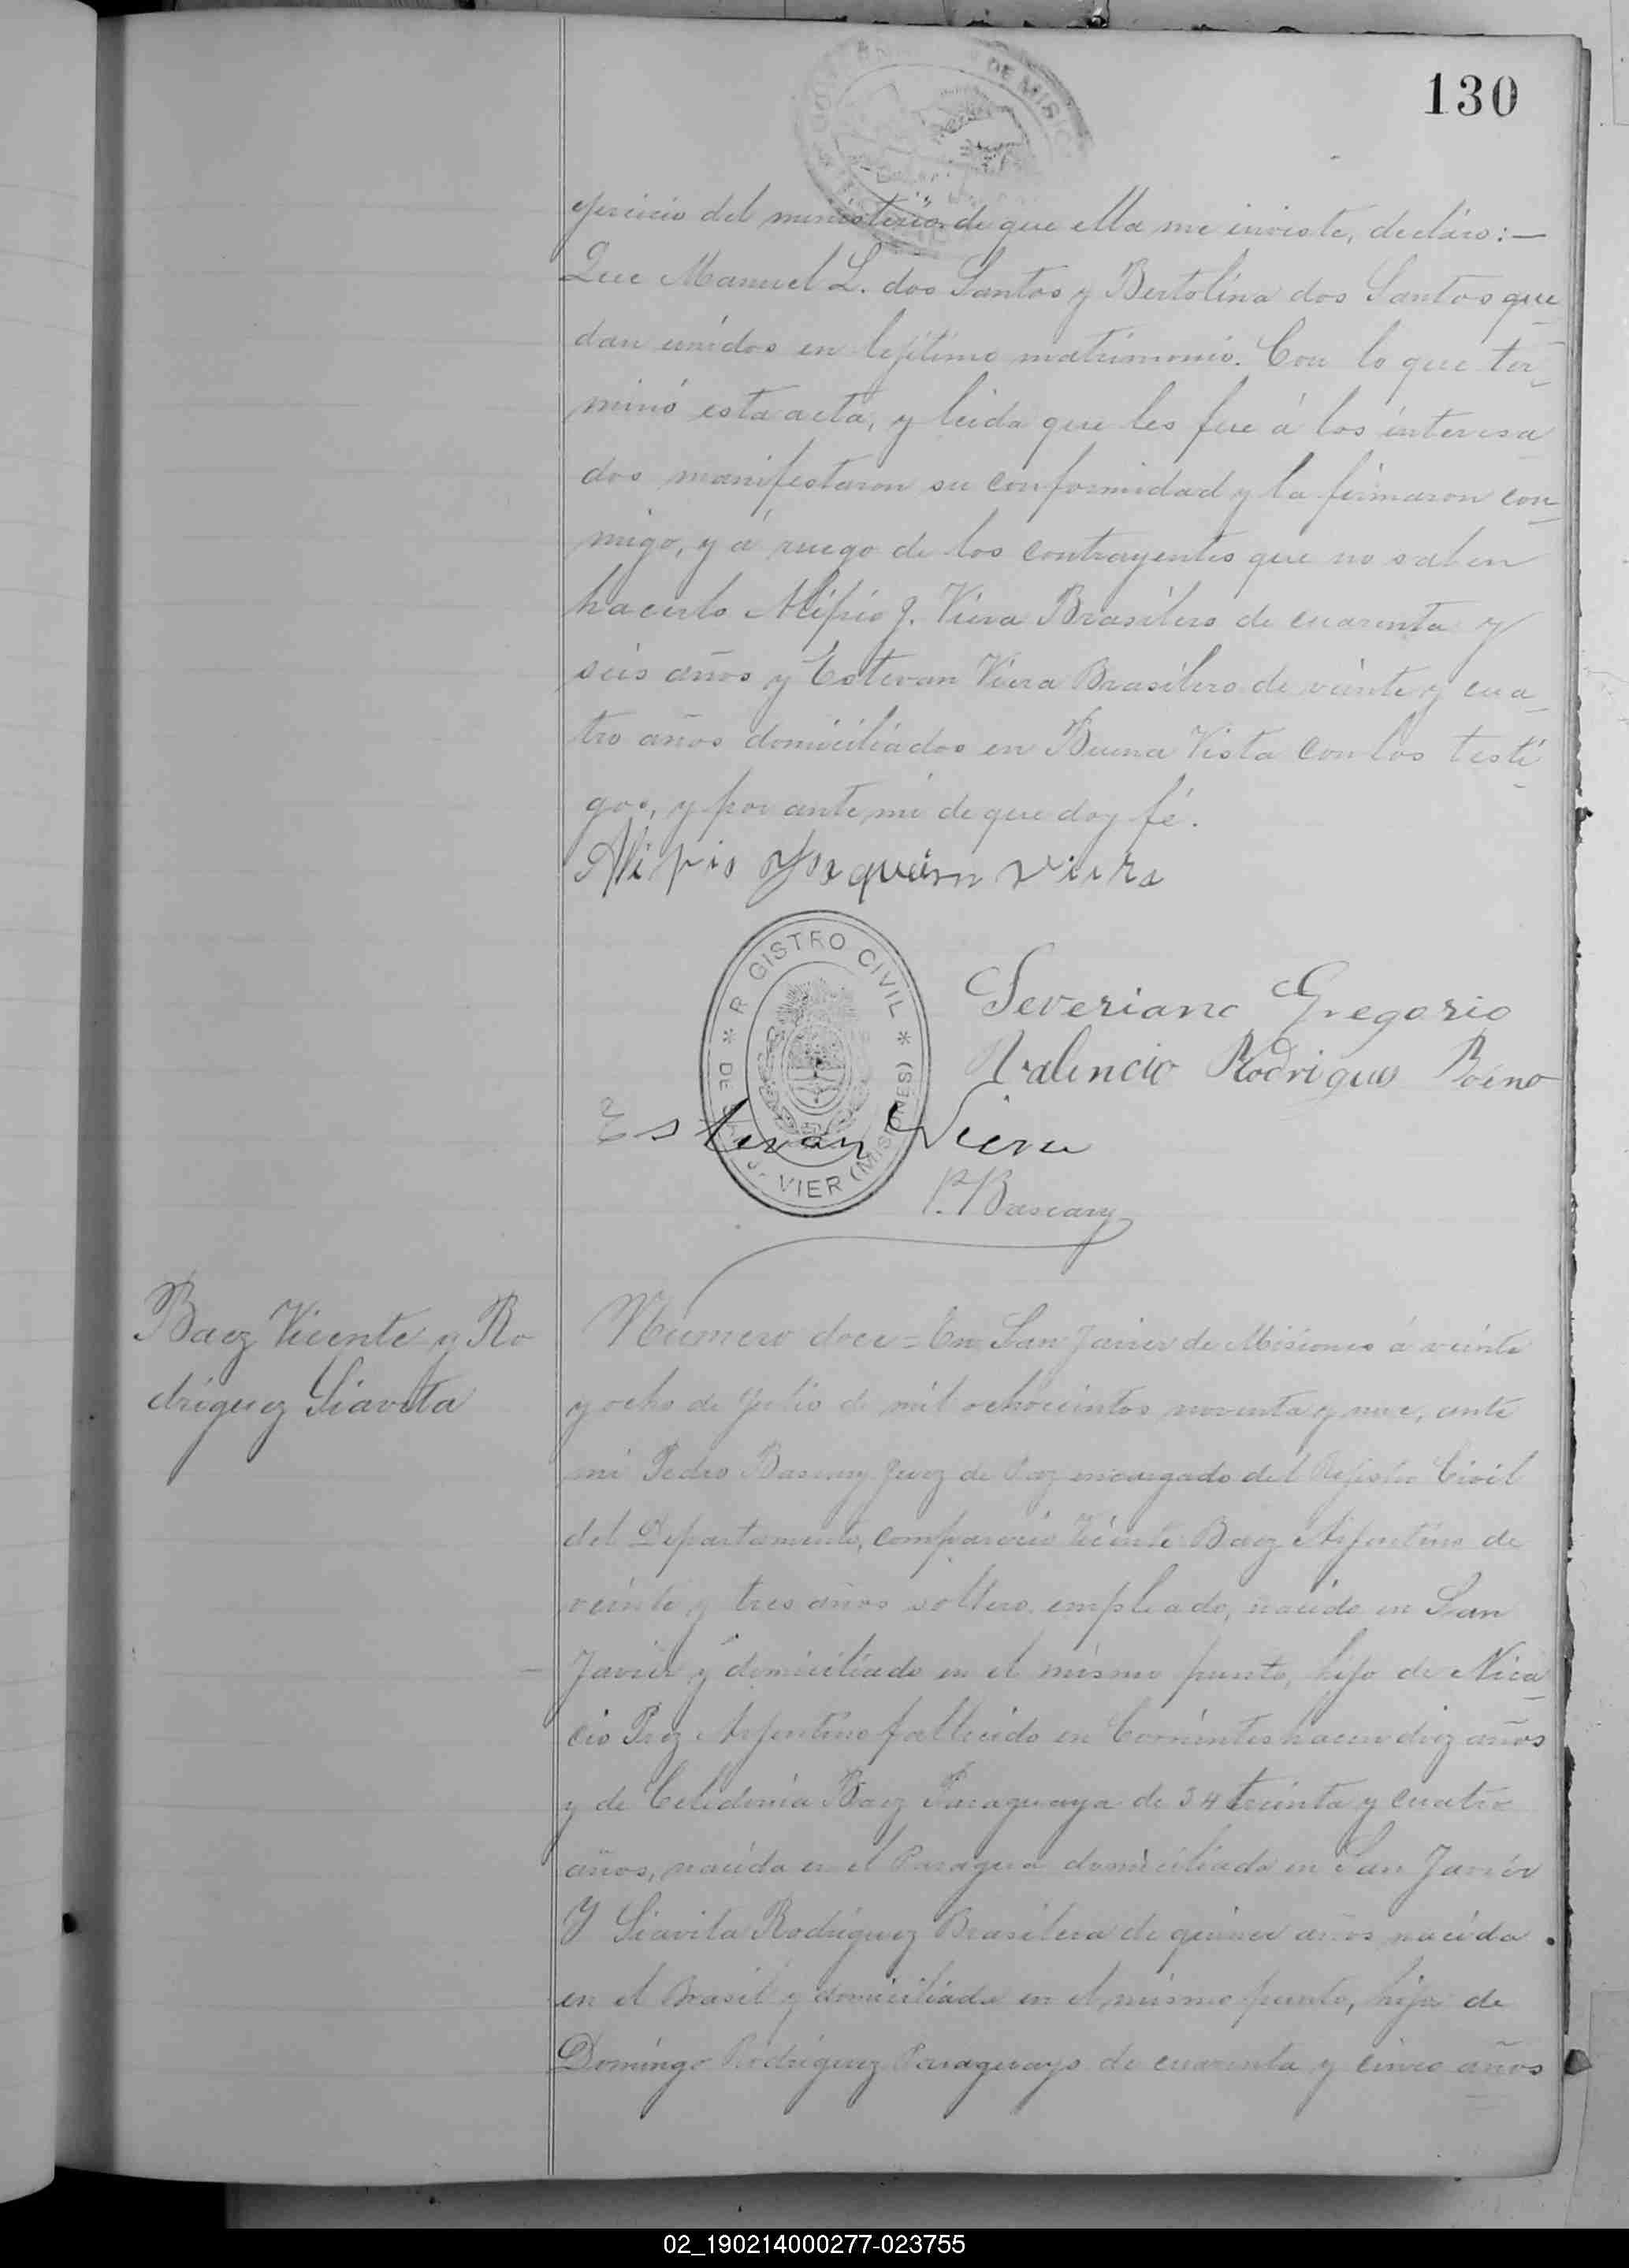 130
DE MISIO
ejercicio del ministerio de que ella me inviste, declaro:—
Que Manuel L. dos Santos y Bertolina dos Santos que
dan unidos en lejitimo matrimonio. Con lo que ter
minó esta acta, y leida que les fue á los interesa
dos manifestaron su conformidad y la firmaron con
migo, y á ruego de los contrayentes que no saben
hacerlo Alipio J. Viera Brasilero de cuarenta y
seis años y Estevan Viera Brasilero de veinte y cua
tro años domiciliados en Buena Vista con los testi
gos, y por ante mi de que doy fé.
Alipio Joaquim Vieira
R GISTRO CIVIL * DE S J VIER (MISIONES) *
Severiano Gregorio
Valencio Rodrigues Boeno
Estevan Viera
P. Bascary
Baez Vicente y Ro
driguez Siavita
Numero doce = En San Javier de Misiones á veinte
y ocho de Julio de mil ochocientos noventa y nueve, ante
mi Pedro Bascary Juez de Paz encargado del Rejistro Civil
del Departamento, compareció Vicente Baez Arjentino de
veinte y tres años soltero empleado, nacido en San
Javier y domiciliado en el mismo punto, hijo de Nica
cio Paez Arjentino fallecido en Corrientes hacen diez años
y de Celedonia Baez Paraguaya de 34 treinta y cuatro
años, nacida en el Paraguai domiciliada en San Javier
Y Siavita Rodriguez Brasilera de quince años nacida
en el Brasil y domiciliada en el mismo punto, hija de
Domingo Rodriguez Paraguayo de cuarenta y cinco años
02_190214000277-023755